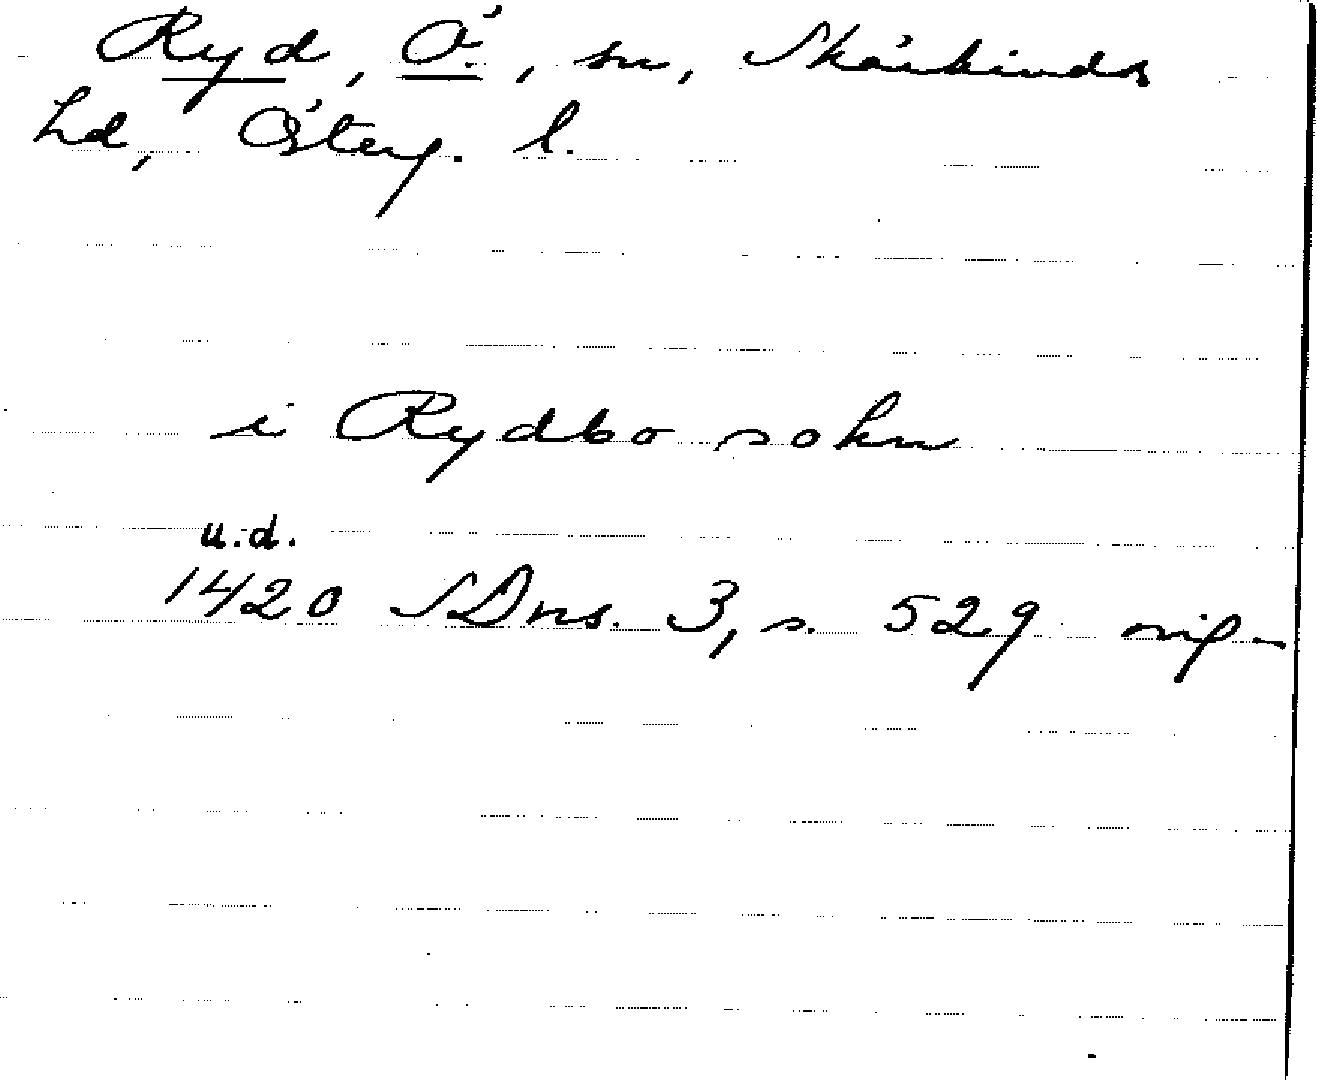 Ryd, Ö., sn, Skärkinds
hd, Österg. l.
i Rydbo sokn
u.d.
1420 SDns. 3, s. 529 orig.